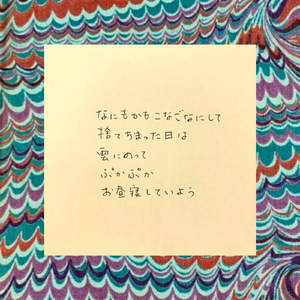 なにもかもこなごなにして
捨てちまった日は
雲にのって
ぷかぷか
お昼寝していよう